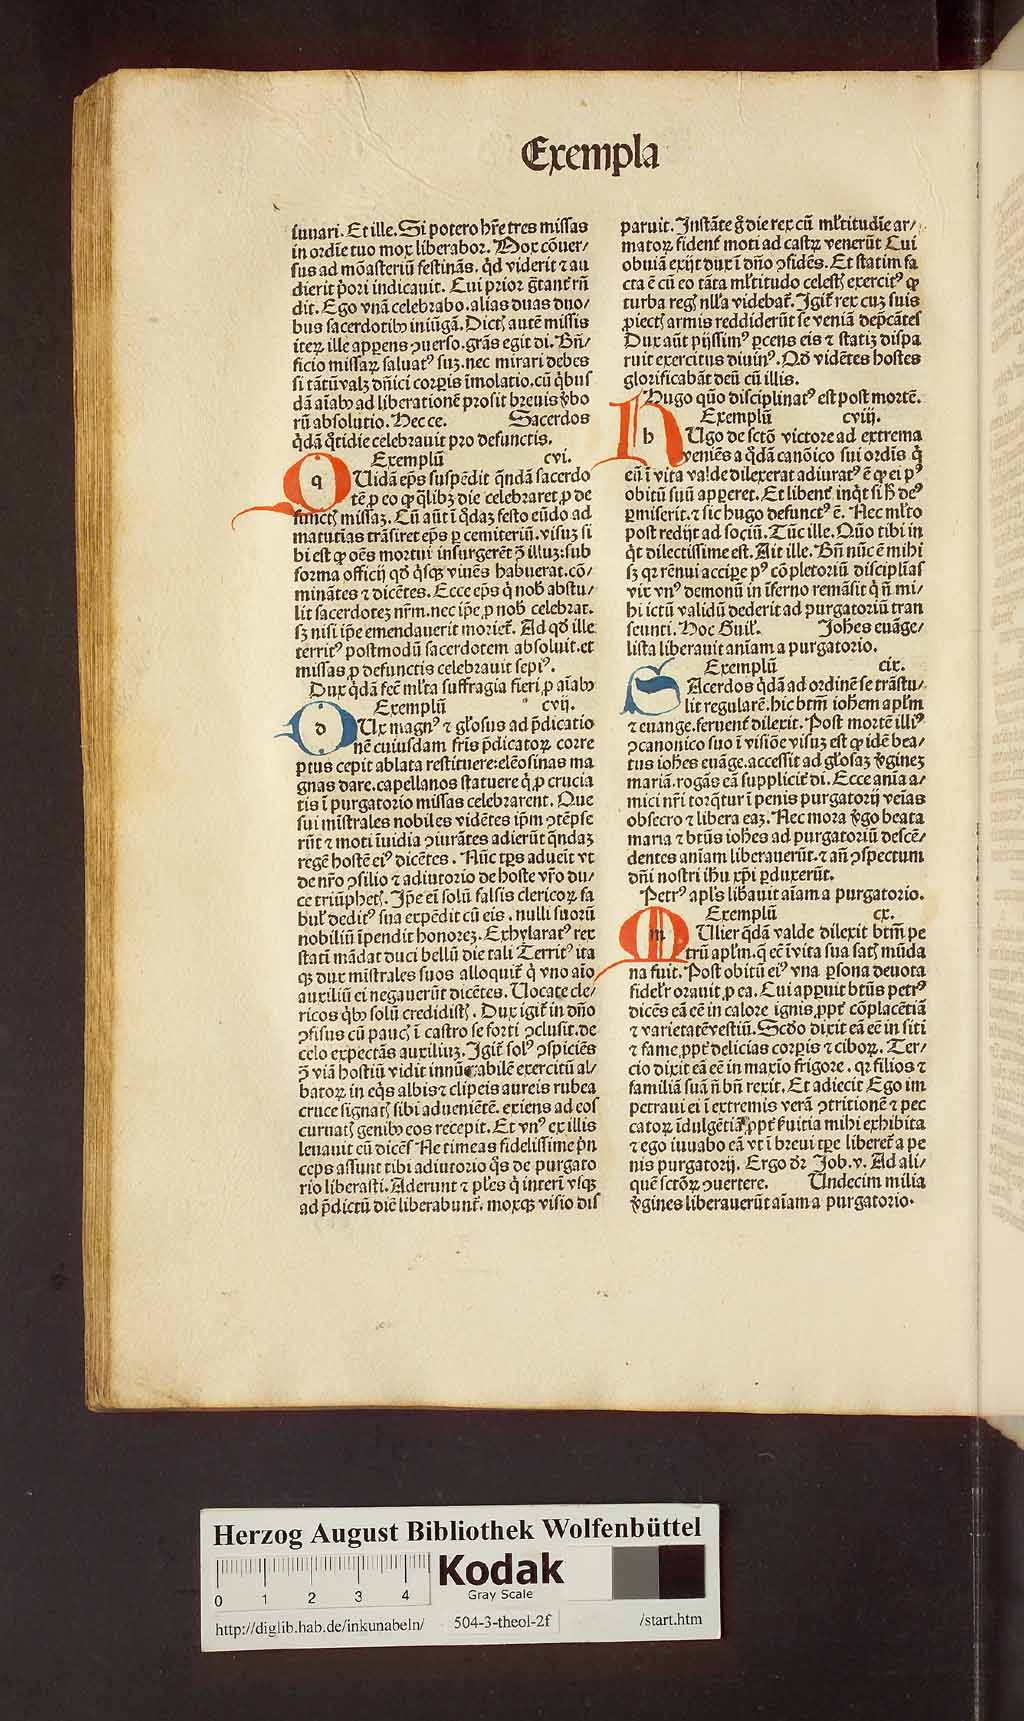 Exempla
iuuari. Et ille. Si potero hr̄e tres missas
in ordīe tuo mox liberabor. Mox cōuer/
sus ad mōasteriū festinās. q̇d viderit ⁊ au
dierit p̄ori indicauit. Cui prior gr̄ant̄ rn̄
dit. Ego vnā celebrabo. alias duas duo/
bus sacerdotibꝫ iniūgā. Dictꝭ autē missis
iteꝝ ille apꝑens ꝯuerso. grās egit di. Bn̄/
ficio missaꝝ saluatꝰ suꝫ. nec mirari debes
si tātū valꝫ dn̄ici corꝑis īmolatio. cū q̇bus
dā aīabꝫ ad liberationē prosit breuis v̄bo
rū absolutio. Hec ce. Sacerdos
q̇dā q̄tidie celebrauit pro defunctis.
Exemplū cvi.
q Uidā ep̄s suspēdit qn̄dā sacerdo
tē ꝑ eo ꝙ q̄libꝫ die celebraret ꝓ de
functꝭ missaꝫ. Cū aūt ī q̇daꝫ festo eūdo ad
matutīas trāsiret ep̄s ꝑ cemiteriū. visuꝫ si
bi est ꝙ oēs mortui insurgerēt ꝯ̄ illuꝫ: sub
forma officij qd̄ q̇sqꝫ viuēs habuerat. cō/
minātes ⁊ dicētes. Ecce ep̄s q̇ nob̄ abstu/
lit sacerdoteꝫ nr̄m. nec ip̄e ꝓ nob̄ celebrat.
sꝫ nisi ip̄e emendauerit moriet̄. Ad qd̄ ille
territꝰ postmodū sacerdotem absoluit. et
missas ꝓ defunctis celebrauit sepiꝰ.
Dux q̇dā fec̄ ml̄ta suffragia fieri ꝓ aīabꝫ
Exemplū cvij.
d Ux magnꝰ ⁊ gl̄osus ad p̄dicatio
nē cuiusdam fris p̄dicatoꝝ corre
ptus cepit ablata restituere: elēosinas ma
gnas dare. capellanos statuere q̇ ꝓ crucia
tis ī purgatorio missas celebrarent. Que
sui mīstrales nobiles vidētes ip̄m ꝯtēpse
rūt ⁊ moti īuidia ꝯiurātes adierūt qn̄daꝫ
regē hostē eiꝰ dicētes. Nūc tp̄s adueit vt
de nr̄o ꝯsilio ⁊ adiutorio de hoste vr̄o du/
ce triūphetꝭ. Ip̄e eī solū falsis clericoꝝ fa
bul̄ deditꝰ sua expēdit cū eis. nulli suorū
nobiliū īpendit honoreꝫ. Exhylaratꝰ rex
statī mādat duci bellū die tali Territꝰ ita
qꝫ dux mīstrales suos alloquit̄ q̇ vno aīo
auxiliū ei negauerūt dicētes. Uocate cle/
ricos q̇bꝫ solū credidistꝭ. Dux igit̄ in dn̄o
ꝯfisus cū paucꝭ ī castro se forti ꝯclusit. de
celo expectās auxiliuꝫ. Igit̄ solꝰ ꝯspiciēs
ꝯ̄ viā hostiū vidit innūerabilē exercitū al/
batoꝝ in eq̇s albis ⁊ clipeis aureis rubea
cruce signatꝭ sibi aduenīētē. exiens ad eos
curuatꝭ genibꝫ eos recepit. Et vnꝰ ex illis
leuauit eū dicēs Ne timeas fidelissime p̄n
ceps assunt tibi adiutorio q̇s de purgato
rio liberasti. Aderunt ⁊ pl̄es q̇ interī vsqꝫ
ad p̄dictū diē liberabunt̄. moxqꝫ visio dis
paruit. Instāte g̊ die rex cū ml̄titudīe ar/
matoꝝ fident̄ moti ad castꝝ venerūt Cui
obuiā exijt dux ī dn̄o ꝯfidēs. Et statim fa
cta ē cū eo tāta ml̄titudo celestꝭ exercitꝰ ꝙ
turba regꝭ null̄a videbat̄. Igit̄ rex cuꝫ suis
ꝓiectꝭ armis reddiderūt se veniā dep̄cātes
Dux aūt pijssimꝰ ꝑcens eis ⁊ statiꝫ dispa
ruit exercitus diuinꝰ. Qd̄ vidētes hostes
glorificabāt deū cū illis.
Hugo quō disciplinatꝰ est post mortē.
Exemplū cviij.
h Ugo de sctō victore ad extrema
veniēs a q̇dā canōico sui ordīs q̇
eū ī vita valde dilexerat adiuratꝰ ē ꝙ ei pꝰ
obitū suū apꝑeret. Et libent̄ inq̄t si h̄ deꝰ
ꝑmiserit. ⁊ sic hugo defunctꝰ ē. Nec ml̄to
post redijt ad sociū. Tūc ille. Quō tibi in
q̇t dilectissime est. Ait ille. Bn̄ nūc ē mihi
sꝫ qꝛ rēnui acciꝑe pꝰ cōpletoriū disciplīas
vix vnꝰ demonū in īferno remāsit q̇ nō mi/
hi ictū validū dederit ad purgatoriū tran
seunti. Hoc Guil̄. Joh̄es euāge/
lista liberauit aniam a purgatorio.
Exemplū cix.
Sacerdos q̇dā ad ordinē se trāstu/
lit regularē. hic btm̄ ioh̄em apl̄m
⁊ euange. feruent̄ dilexit. Post mortē illiꝰ
ꝯcanonico suo ī visiōe visuꝫ est ꝙ idē bea/
tus ioh̄es euāge. accessit ad gl̄osaꝫ v̄gineꝫ
mariā. rogās eā supplicit̄ di. Ecce anīa a/
mici nr̄i torq̄tur ī penis purgatorij veīas
obsecro ⁊ libera eaꝫ. Nec mora v̄go beata
maria ⁊ btūs ioh̄es ad purgatoriū descē/
dentes aniam liberauerūt. ⁊ an̄ ꝯspectum
dn̄i nostri ih̄u xp̄i ꝑduxerūt.
Petrꝰ apl̄s lib̄auit aīam a purgatorio.
Exemplū cx.
m Ulier q̇dā valde dilexit btm̄ pe
trū apl̄m. q̄ ec̄ ī vita sua satꝭ mūda
na fuit. Post obitū eiꝰ vna ꝑsona deuota
fidelr̄ orauit ꝓ ea. Cui apꝑuit btūs petrꝰ
dicēs eā eē in calore ignis ꝓpt̄ cōplacētiā
⁊ varietatē vestiū. Scd̄o dixit eā eē in siti
⁊ fame ꝓpt̄ delicias corꝑis ⁊ ciboꝝ. Ter/
cio dixit eā eē in maxio frigore. qꝛ filios ⁊
familiā suā nō bn̄ rexit. Et adiecit Ego im
petraui ei ī extremis verā ꝯtritionē ⁊ pec
catoꝝ īdulgētiā ꝓpt̄ s̄uitia mihi exhibita
⁊ ego iuuabo eā vt ī breui tꝑe liberet̄ a pe
nis purgatorij. Ergo dr̄ Job. v. Ad ali/
quē sctōꝝ ꝯuertere. Undecim milia
v̄gines liberauerūt aīam a purgatorio.
Herzog August Bibliothek Wolfenbüttel
0 1 2 3 4
Kodak
Gray Scale
http://diglib.hab.de/inkunabeln/ 504-3-theol-2f /start.htm